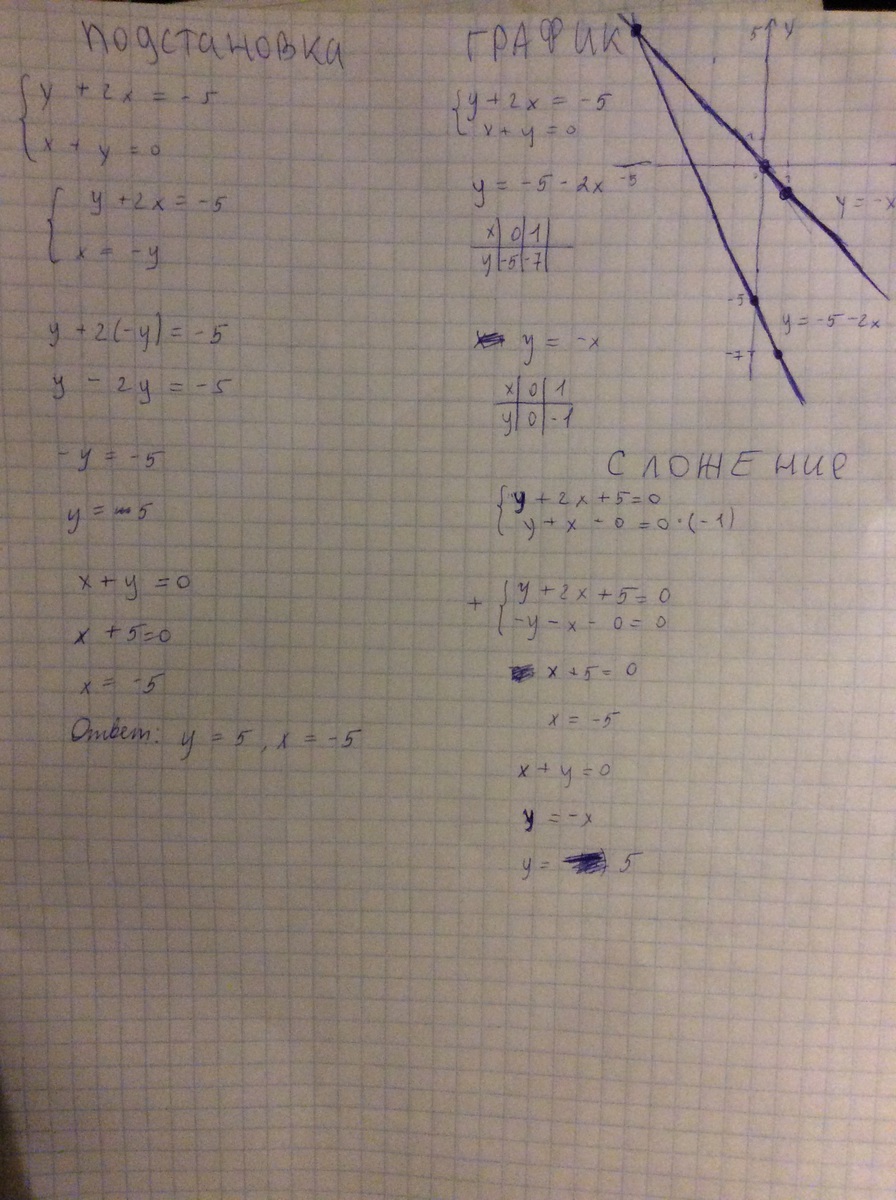 Подстановка
y + 2x = -5
x + y = 0
y + 2x = -5
x = -y
y + 2(-y) = -5
y - 2y = -5
-y = -5
y = 5
x + y = 0
x + 5 = 0
x = -5
Ответ: y = 5, x = -5
ГРАФИК
y + 2x = -5
x + y = 0
y = -5 - 2x
x | 0 | 1 |
y | -5 | -7 |
y = -x
x | 0 | 1
y | 0 | -1
5 y
-5
y = -x
-5
y = -5 - 2x
-7
СЛОЖЕНИЕ
y + 2x + 5 = 0
y + x - 0 = 0 · (-1)
+ y + 2x + 5 = 0
-y - x - 0 = 0
x + 5 = 0
x = -5
x + y = 0
y = -x
y = 5